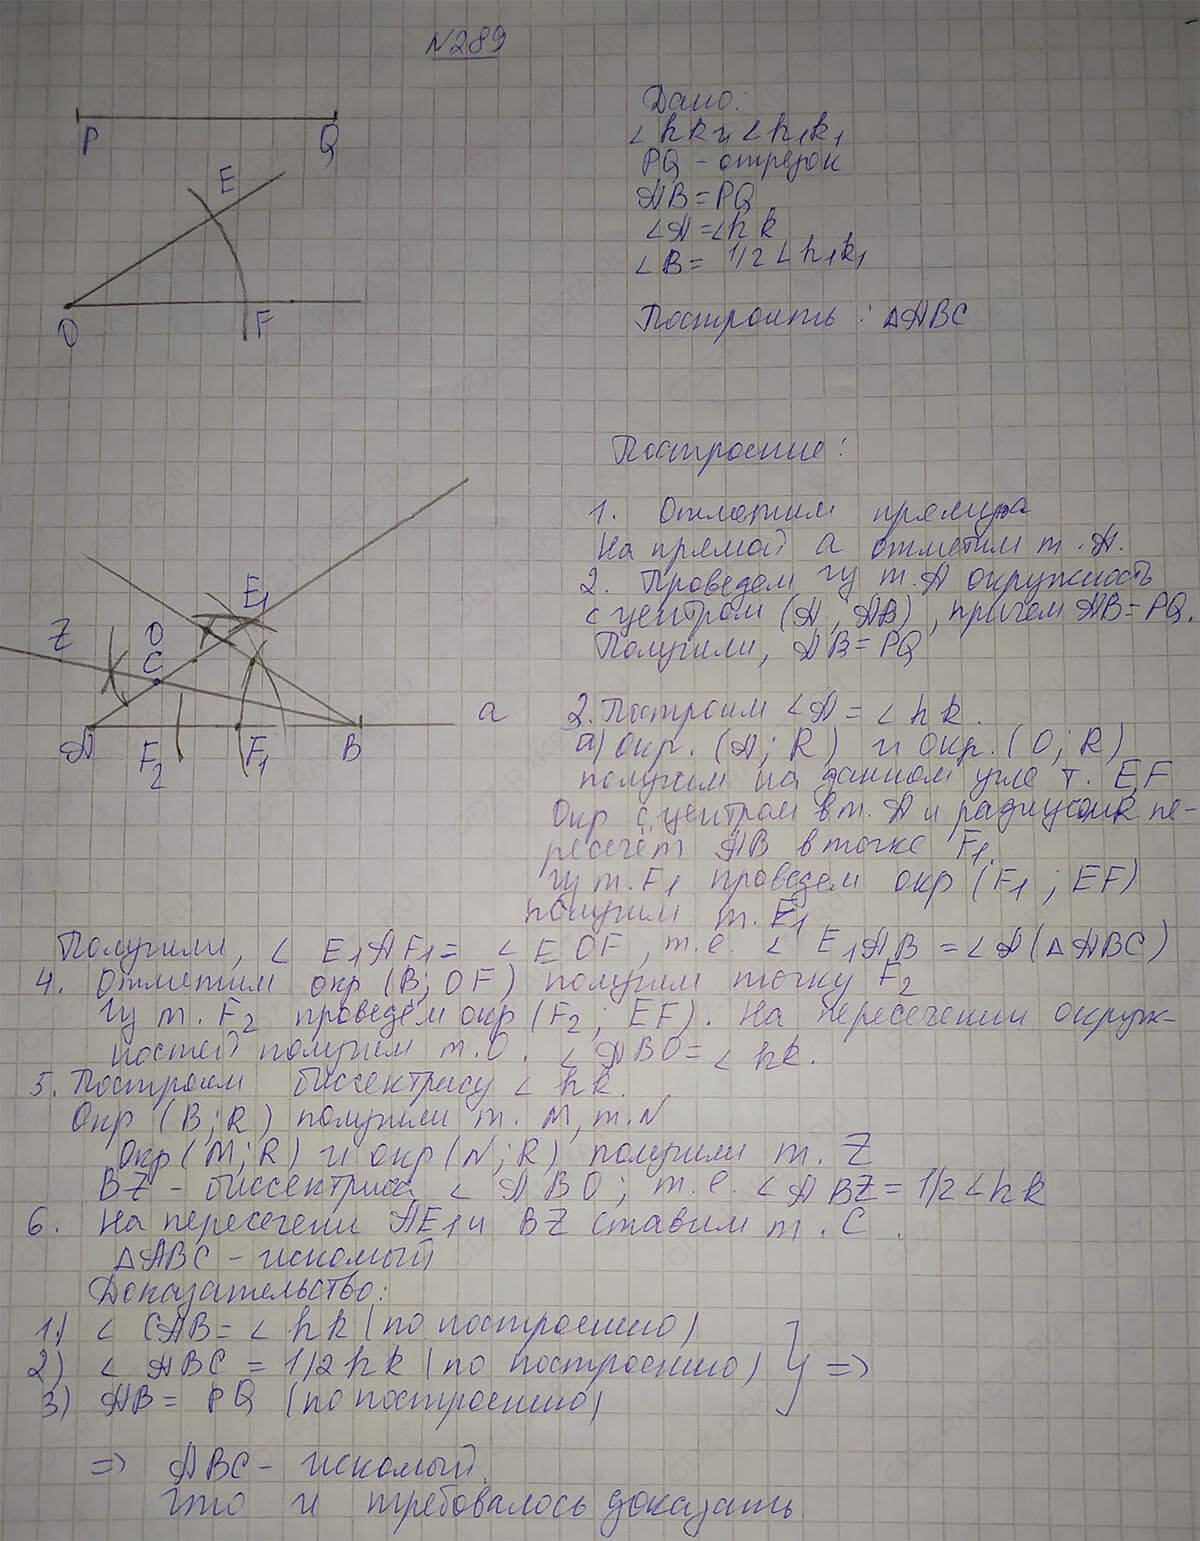 N289
P Q
E
O F
Дано:
∠hk и ∠h₁k₁
PQ - отрезок
AB = PQ
∠A = ∠hk
∠B = 1/2 ∠h₁k₁
Построить: △ABC
Построение:
1. Отметим прямую a
На прямой a отметим т. A.
2. Проведем из т. A окружность
с центром (A; AB), причем AB = PQ.
Получили, AB = PQ
E₁
Z O
C
a
A F₂ F₁ B
2. Построим ∠A = ∠hk.
а) окр. (A; R) и окр. (O; R)
получим на данном угле т. E,F
Окр с центром в т. A и радиусом R пе-
ресечёт AB в точке F₁.
из т. F₁ проведем окр (F₁; EF)
получим т. E₁
Получили, ∠E₁AF₁ = ∠EOF, т.е. ∠E₁AB = ∠A (△ABC)
4. Отметим окр (B; OF) получим точку F₂
из т. F₂ проведём окр (F₂; EF). На пересечении окруж-
ностей получим т. O. ∠ABO = ∠hk.
5. Построим биссектрису ∠hk.
Окр (B; R) получили т. M, т. N
Окр (M; R) и окр (N; R) получили т. Z
BZ - биссектриса ∠ABO; т.е. ∠ABZ = 1/2 ∠hk
6. На пересечени AE₁ и BZ ставим т. C.
△ABC - искомый
Доказательство:
1) ∠CAB = ∠hk (по построению)
2) ∠ABC = 1/2 hk (по построению) } =>
3) AB = PQ (по построению)
=> ABC - искомый.
Что и требовалось доказать.